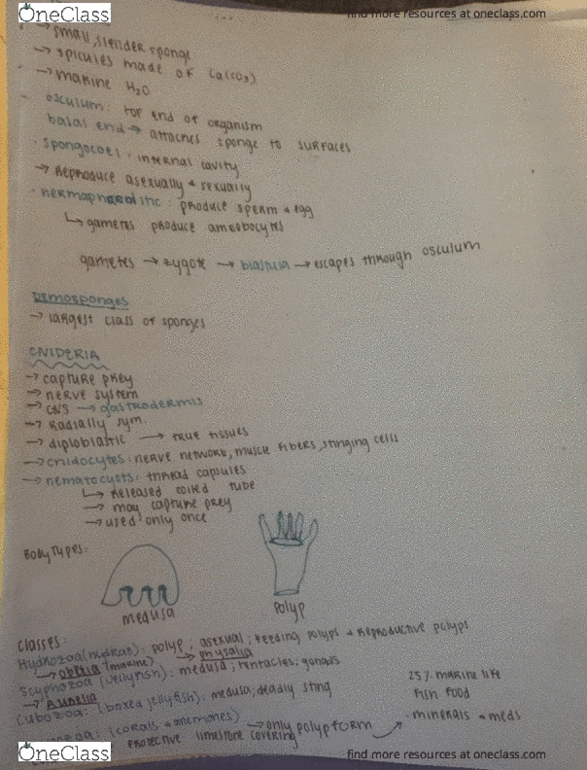 OneClass
find more resources at oneclass.com
→ small, slender sponge
→ spicules made of Ca(CO3)
→ marine H2O
osculum: top end of organism
basal end → attaches sponge to surfaces
· spongocoel: internal cavity
→ Reproduce asexually & sexually
· hermaphroditic: produce sperm & egg
↳ gametes produce amoebocytes
gametes → zygote → blastula → escapes through osculum
Demosponges
→ largest class of sponges
CNIDERIA
→ capture prey
→ nerve system
→ CNS → gastrodermis
→ Radially sym.
→ diploblastic → true tissues
→ cnidocytes: nerve network, muscle fibers, stinging cells
→ nematocysts: thread capsules
↳ Released coiled tube
→ may capture prey
→ used only once
Body Types:
medusa
Polyp
classes:
Hydrozoa (hydras): polyp; asexual; feeding polyps & Reproductive polyps
→ obelia (marine) → physalia
Scyphozoa (jellyfish): medusa; tentacles; gonads
→ Aurelia
Cubozoa: (boxed jellyfish): medusa; deadly sting
(corals & anemones) → only polyp form
protective limestone covering
25% marine life
fish food
· minerals & meds
OneClass
find more resources at oneclass.com